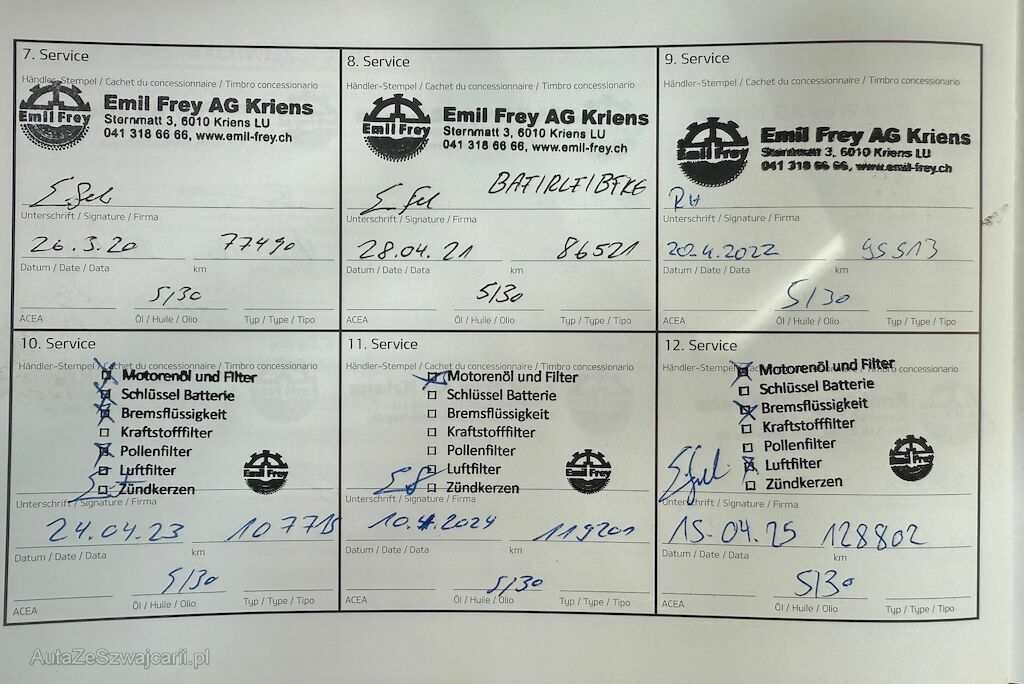 7. Service
Händler-Stempel / Cachet du concessionnaire / Timbro concessionario
Emil Frey
Emil Frey AG Kriens
Sternmatt 3, 6010 Kriens LU
041 318 66 66, www.emil-frey.ch
Unterschrift / Signature / Firma
26.3.20 77490
Datum / Date / Data km
5/30
ACEA Öl / Huile / Olio Typ / Type / Tipo
8. Service
Händler-Stempel / Cachet du concessionnaire / Timbro concessionario
Emil Frey
Emil Frey AG Kriens
Sternmatt 3, 6010 Kriens LU
041 318 66 66, www.emil-frey.ch
Unterschrift / Signature / Firma
28.04.21 86521
Datum / Date / Data km
5/30
ACEA Öl / Huile / Olio Typ / Type / Tipo
9. Service
Händler-Stempel / Cachet du concessionnaire / Timbro concessionario
Emil Frey
Emil Frey AG Kriens
Sternmatt 3, 6010 Kriens LU
041 318 66 66, www.emil-frey.ch
Unterschrift / Signature / Firma
20.4.2022 95513
Datum / Date / Data km
5/30
ACEA Öl / Huile / Olio Typ / Type / Tipo
10. Service
Händler-Stempel / Cachet du concessionnaire / Timbro concessionario
Motorenöl und Filter
Schlüssel Batterie
Bremsflüssigkeit
Kraftstofffilter
Pollenfilter
Luftfilter
Zündkerzen
Emil Frey
Unterschrift / Signature / Firma
24.04.23 107715
Datum / Date / Data km
5/30
ACEA Öl / Huile / Olio Typ / Type / Tipo
11. Service
Händler-Stempel / Cachet du concessionnaire / Timbro concessionario
Motorenöl und Filter
Schlüssel Batterie
Bremsflüssigkeit
Kraftstofffilter
Pollenfilter
Luftfilter
Zündkerzen
Emil Frey
Unterschrift / Signature / Firma
10.4.2024 119201
Datum / Date / Data km
5/30
ACEA Öl / Huile / Olio Typ / Type / Tipo
12. Service
Händler-Stempel / Cachet du concessionnaire / Timbro concessionario
Motorenöl und Filter
Schlüssel Batterie
Bremsflüssigkeit
Kraftstofffilter
Pollenfilter
Luftfilter
Zündkerzen
Emil Frey
Unterschrift / Signature / Firma
15.04.25 128802
Datum / Date / Data km
5/30
ACEA Öl / Huile / Olio Typ / Type / Tipo
AutaZeSzwajcarii.pl